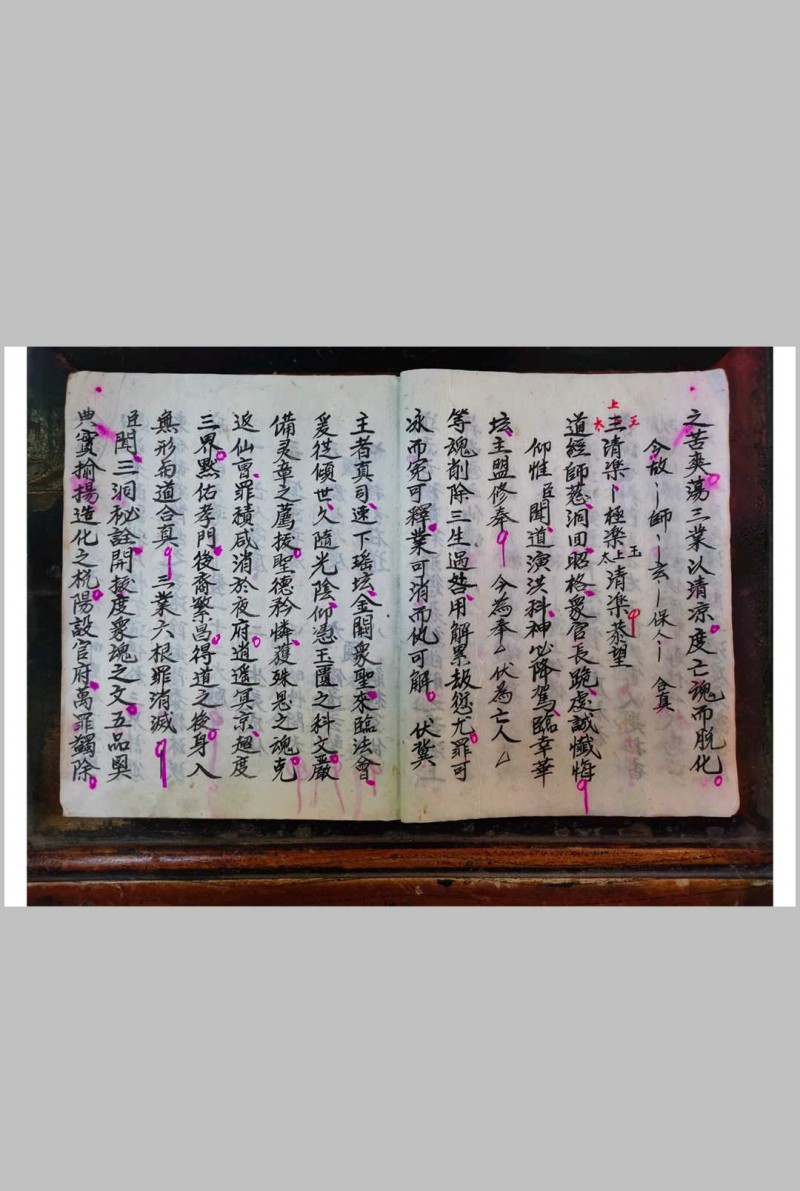 之苦爽蕩三業以清凉度亡魂而脱化
今故丨師丨玄丨保人丨 合真
三清樂丨極樂上清樂恭望
上
太 玉
太 玉
道經師慈洞回昭格眾官長跪虔誠懺悔
仰惟臣聞道演洪科神必降駕臨幸華
坛主盟修奉 今為奉厶伏為亡人厶
等魂削除三生過咎用解累劫愆尤罪可
冰而冤可釋業可消而仇可解 伏冀
王者真司速下瑶坛金闕衆聖來臨法會
爰從傾世久隨光陰仰憑玉匱之科文嚴
備灵章之薦拔聖德矜憐獲殊恩之魂克
返仙曹罪積咸消於夜府逍遥冥京超度
三界點佑孝門後裔繁昌得道之後身入
無形而道合真 三業六根罪消滅
臣聞三洞秘詮開拔度衆魂之文五品奥
典寶揄揚造化之㭇陽設官府萬罪蠲除